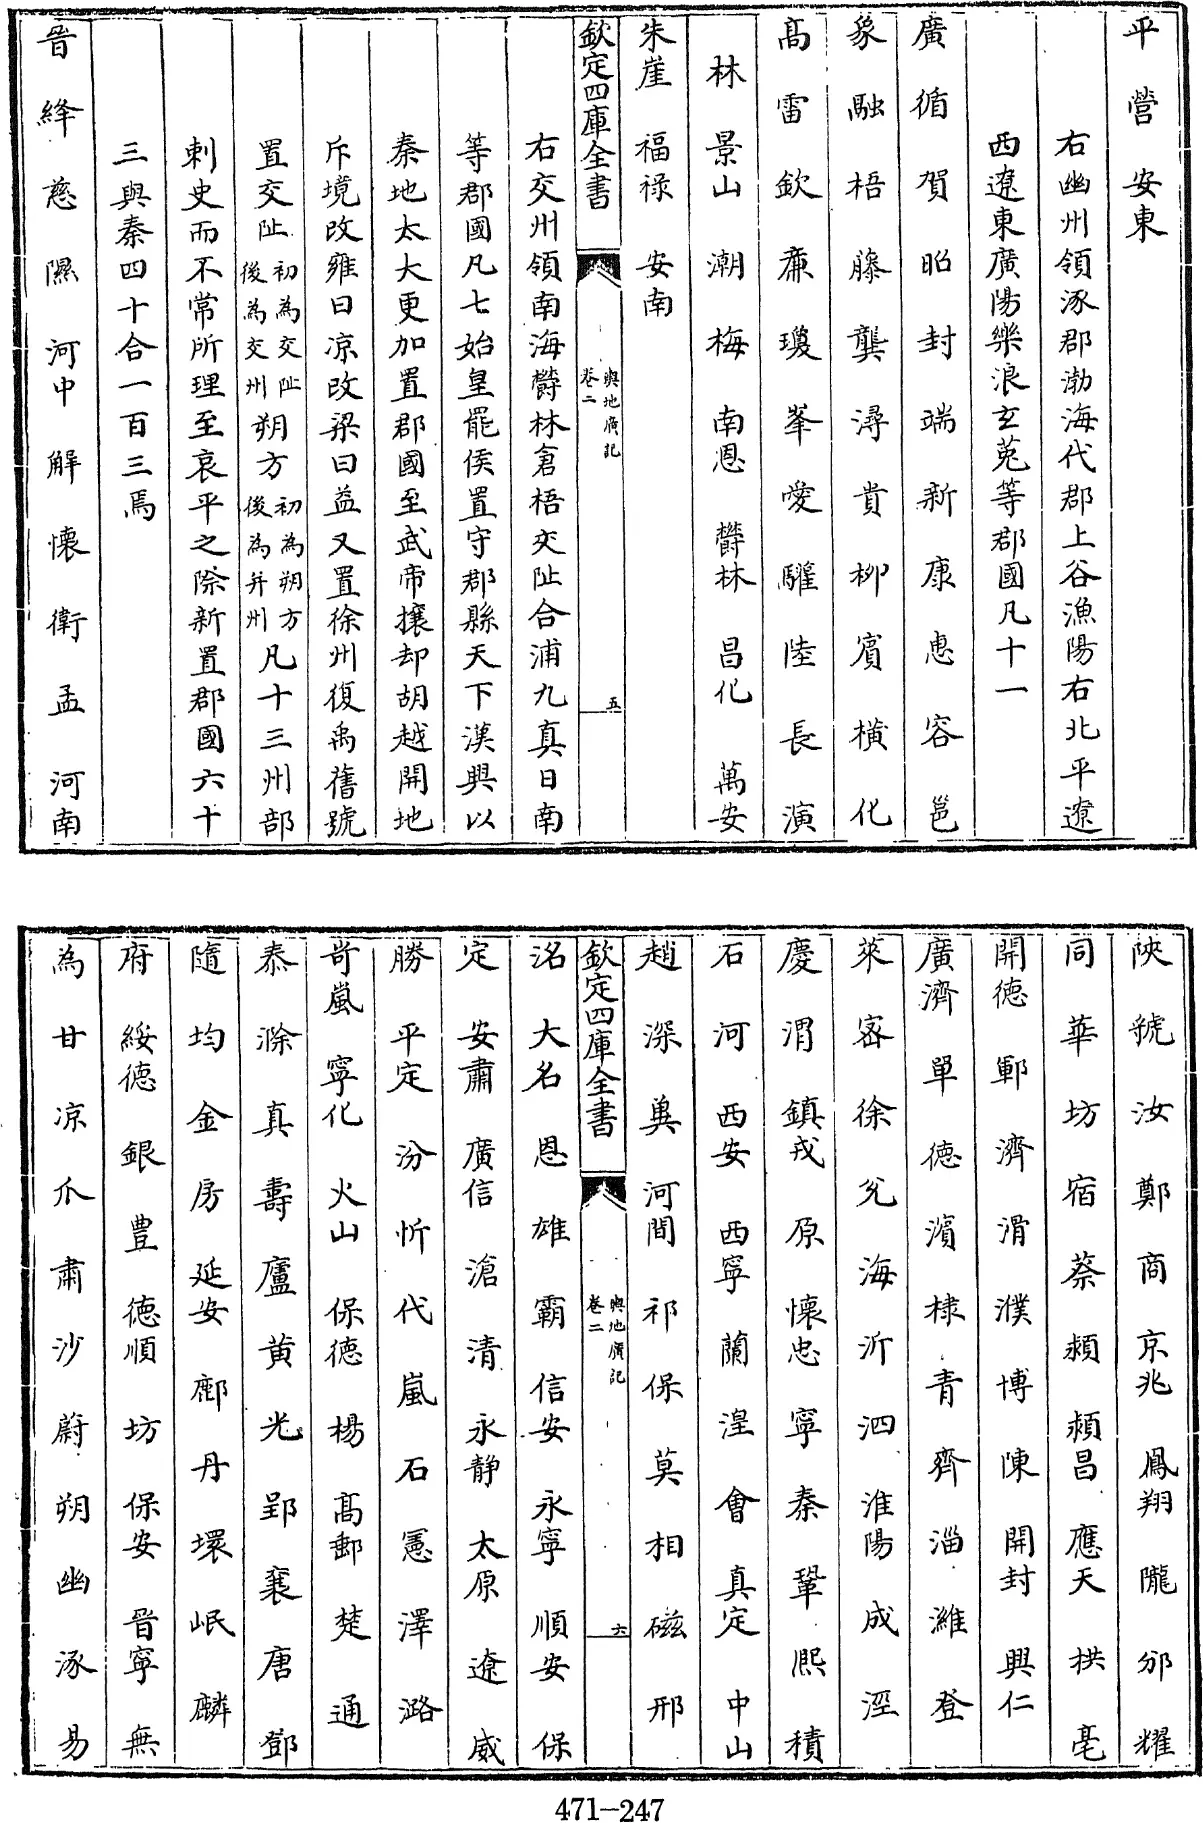 平 營 安東
右幽州領涿郡渤海代郡上谷漁陽右北平遼
西遼東廣陽樂浪玄菟等郡國凡十一
廣 循 賀 昭 封 端 新 康 惠 容 邕
象 融 梧 藤 龔 潯 貴 栁 賔 橫 化
髙 雷 欽 亷 瓊 峯 愛 驩 陸 長 演
林 景山 潮 梅 南恩 欎林 昌化 萬安
朱崖 福祿 安南
欽定四庫全書
輿地廣記
卷二
五
右交州領南海欎林倉梧交阯合浦九真日南
等郡國凡七始皇罷侯置守郡縣天下漢興以
秦地太大更加置郡國至武帝攘却胡越開地
斥境改雍曰凉改梁曰益又置徐州復禹舊號
置交阯初為交阯後為交州朔方初為朔方後為并州凡十三州部
刺史而不常所理至哀平之際新置郡國六十
三與秦四十合一百三焉
晉 絳 慈 隰 河中 解 懷 衛 孟 河南
陜 虢 汝 鄭 商 京兆 鳳翔 隴 邠 耀
同 華 坊 宿 蔡 潁 潁昌 應天 拱 亳
開德 鄆 濟 滑 濮 博 陳 開封 興仁
廣濟 單 德 濱 棣 青 齊 淄 濰 登
萊 宻 徐 兖 海 沂 泗 淮陽 成 涇
慶 渭 鎮戎 原 懷忠 寧 秦 鞏 熈 積
石 河 西安 西寧 蘭 湟 會 真定 中山
趙 深 兾 河間 祁 保 莫 相 磁 邢
欽定四庫全書
輿地廣記
卷二
六
洺 大名 恩 雄 霸 信安 永寧 順安 保
定 安肅 廣信 滄 清 永静 太原 遼 威
勝 平定 汾 忻 代 嵐 石 憲 澤 潞
岢嵐 寧化 火山 保德 楊 髙郵 楚 通
泰 滁 真 壽 廬 黄 光 郢 襄 唐 鄧
隨 均 金 房 延安 鄜 丹 環 岷 麟
府 綏德 銀 豊 德順 坊 保安 晉寧 無
為 甘 凉 瓜 肅 沙 蔚 朔 幽 涿 易
471-247